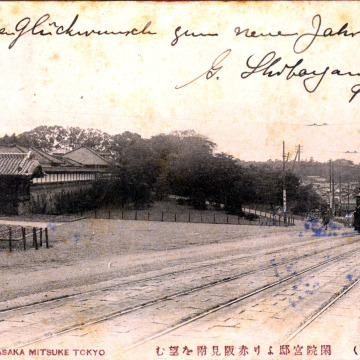 Glückwunsch zum neuen Jahr
G. Shibayam
ASAKA MITSUKE TOKYO
閑院宮邸より赤阪見附を望む